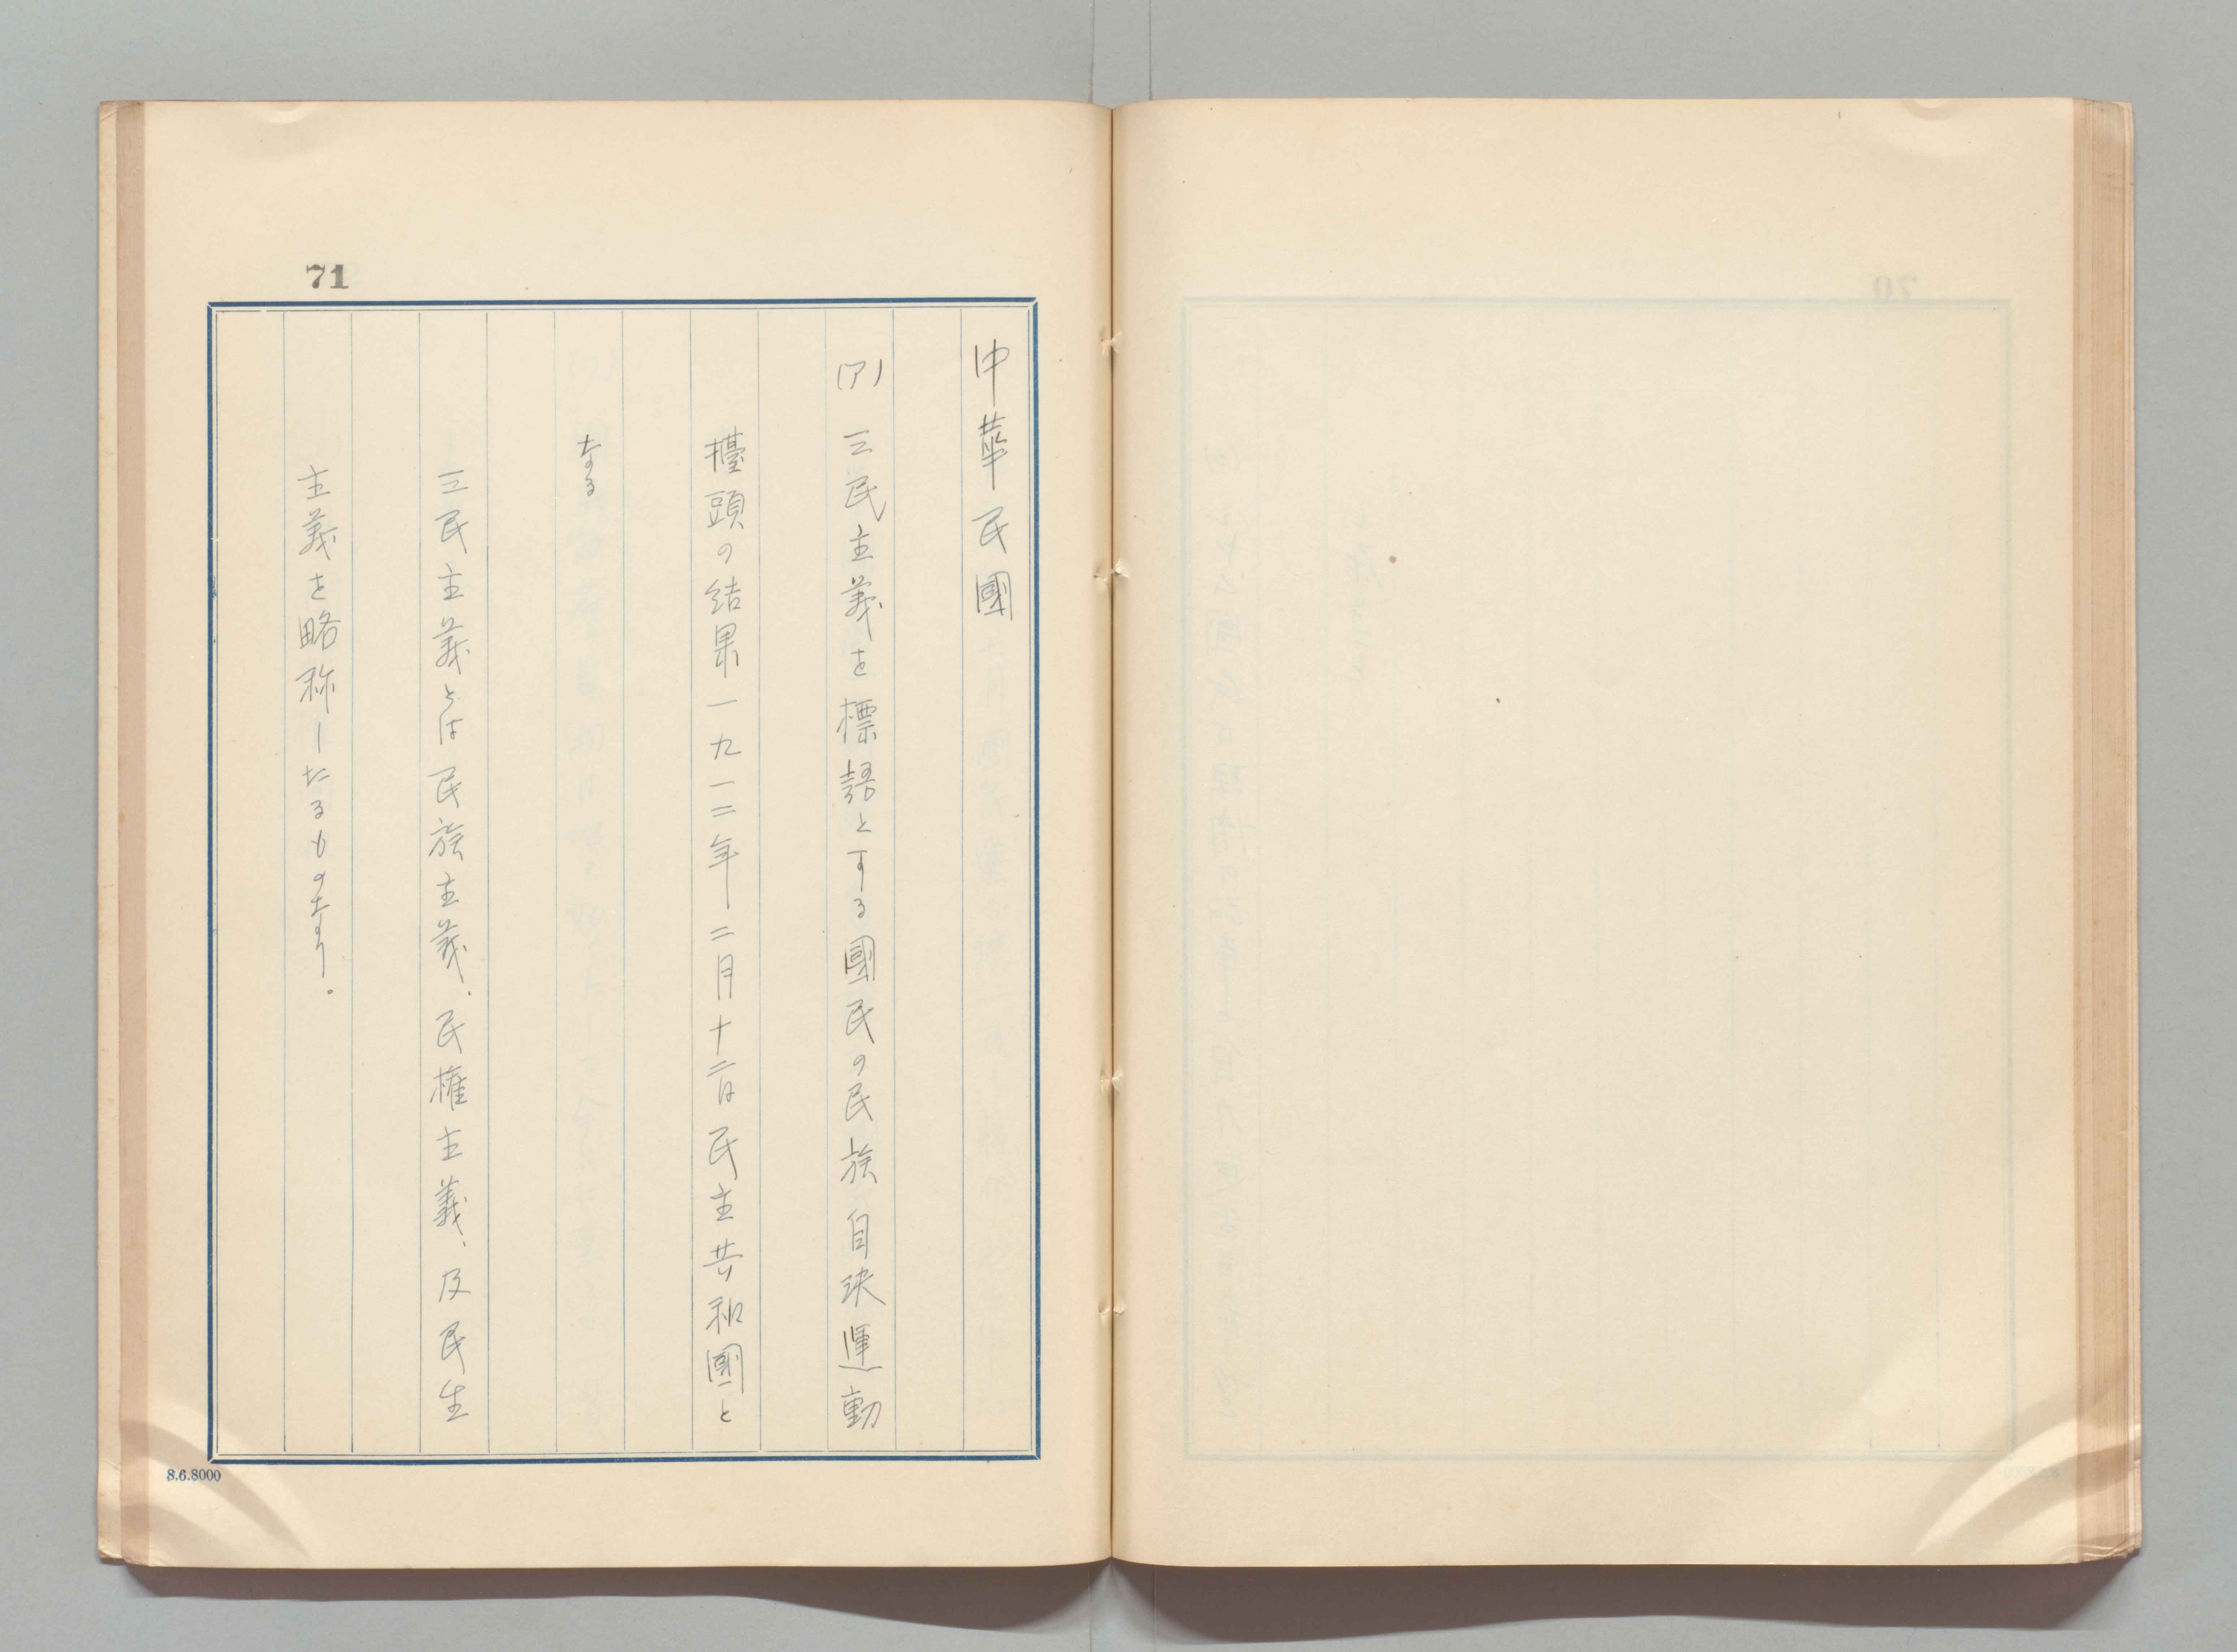 71
中華民國
(ア) 三民主義を標語とする國民の民族自決運動
擡頭の結果一九一二年二月十二日民主共和國と
なる
三民主義とは民族主義、民権主義、及民生
主義を略称したるものなり。
8.6.8000